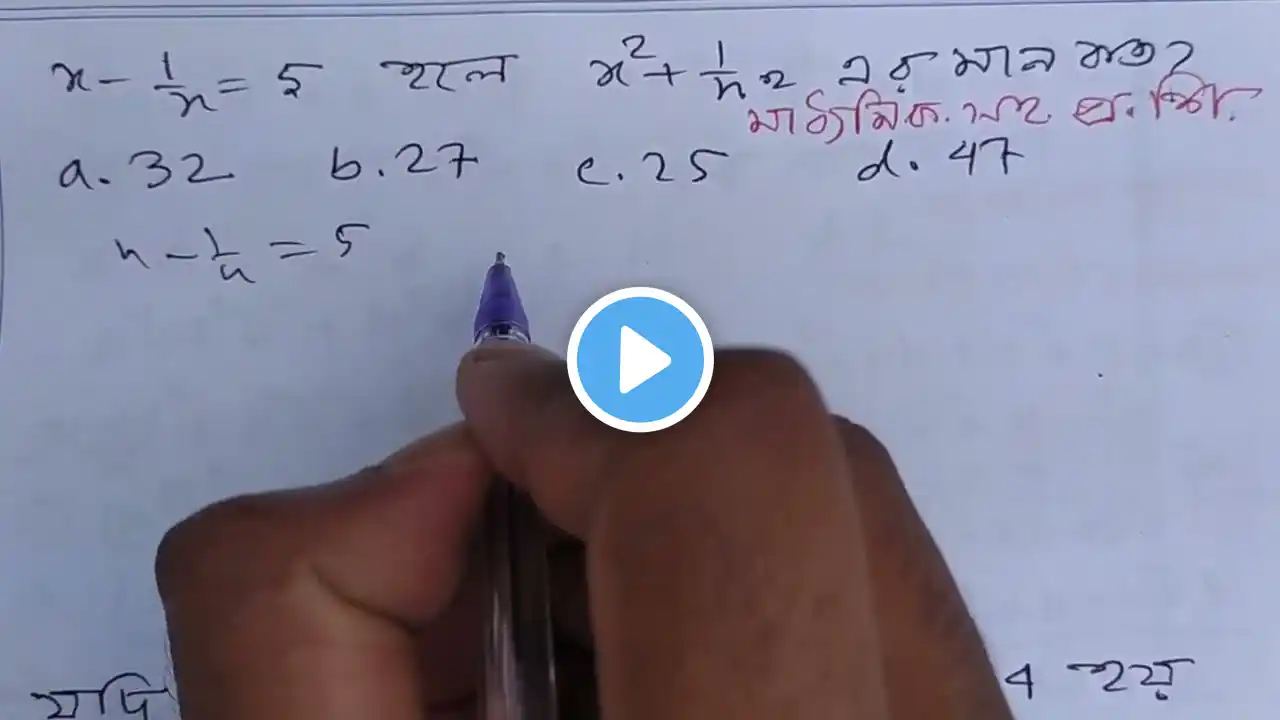 x - 1/x = 5 হলে x² + 1/x² এর মান কত?
মাধ্যমিক. সহ. প্র. শি.
a. 32 b. 27 c. 25 d. 47
x - 1/x = 5
যদি 4 হয়